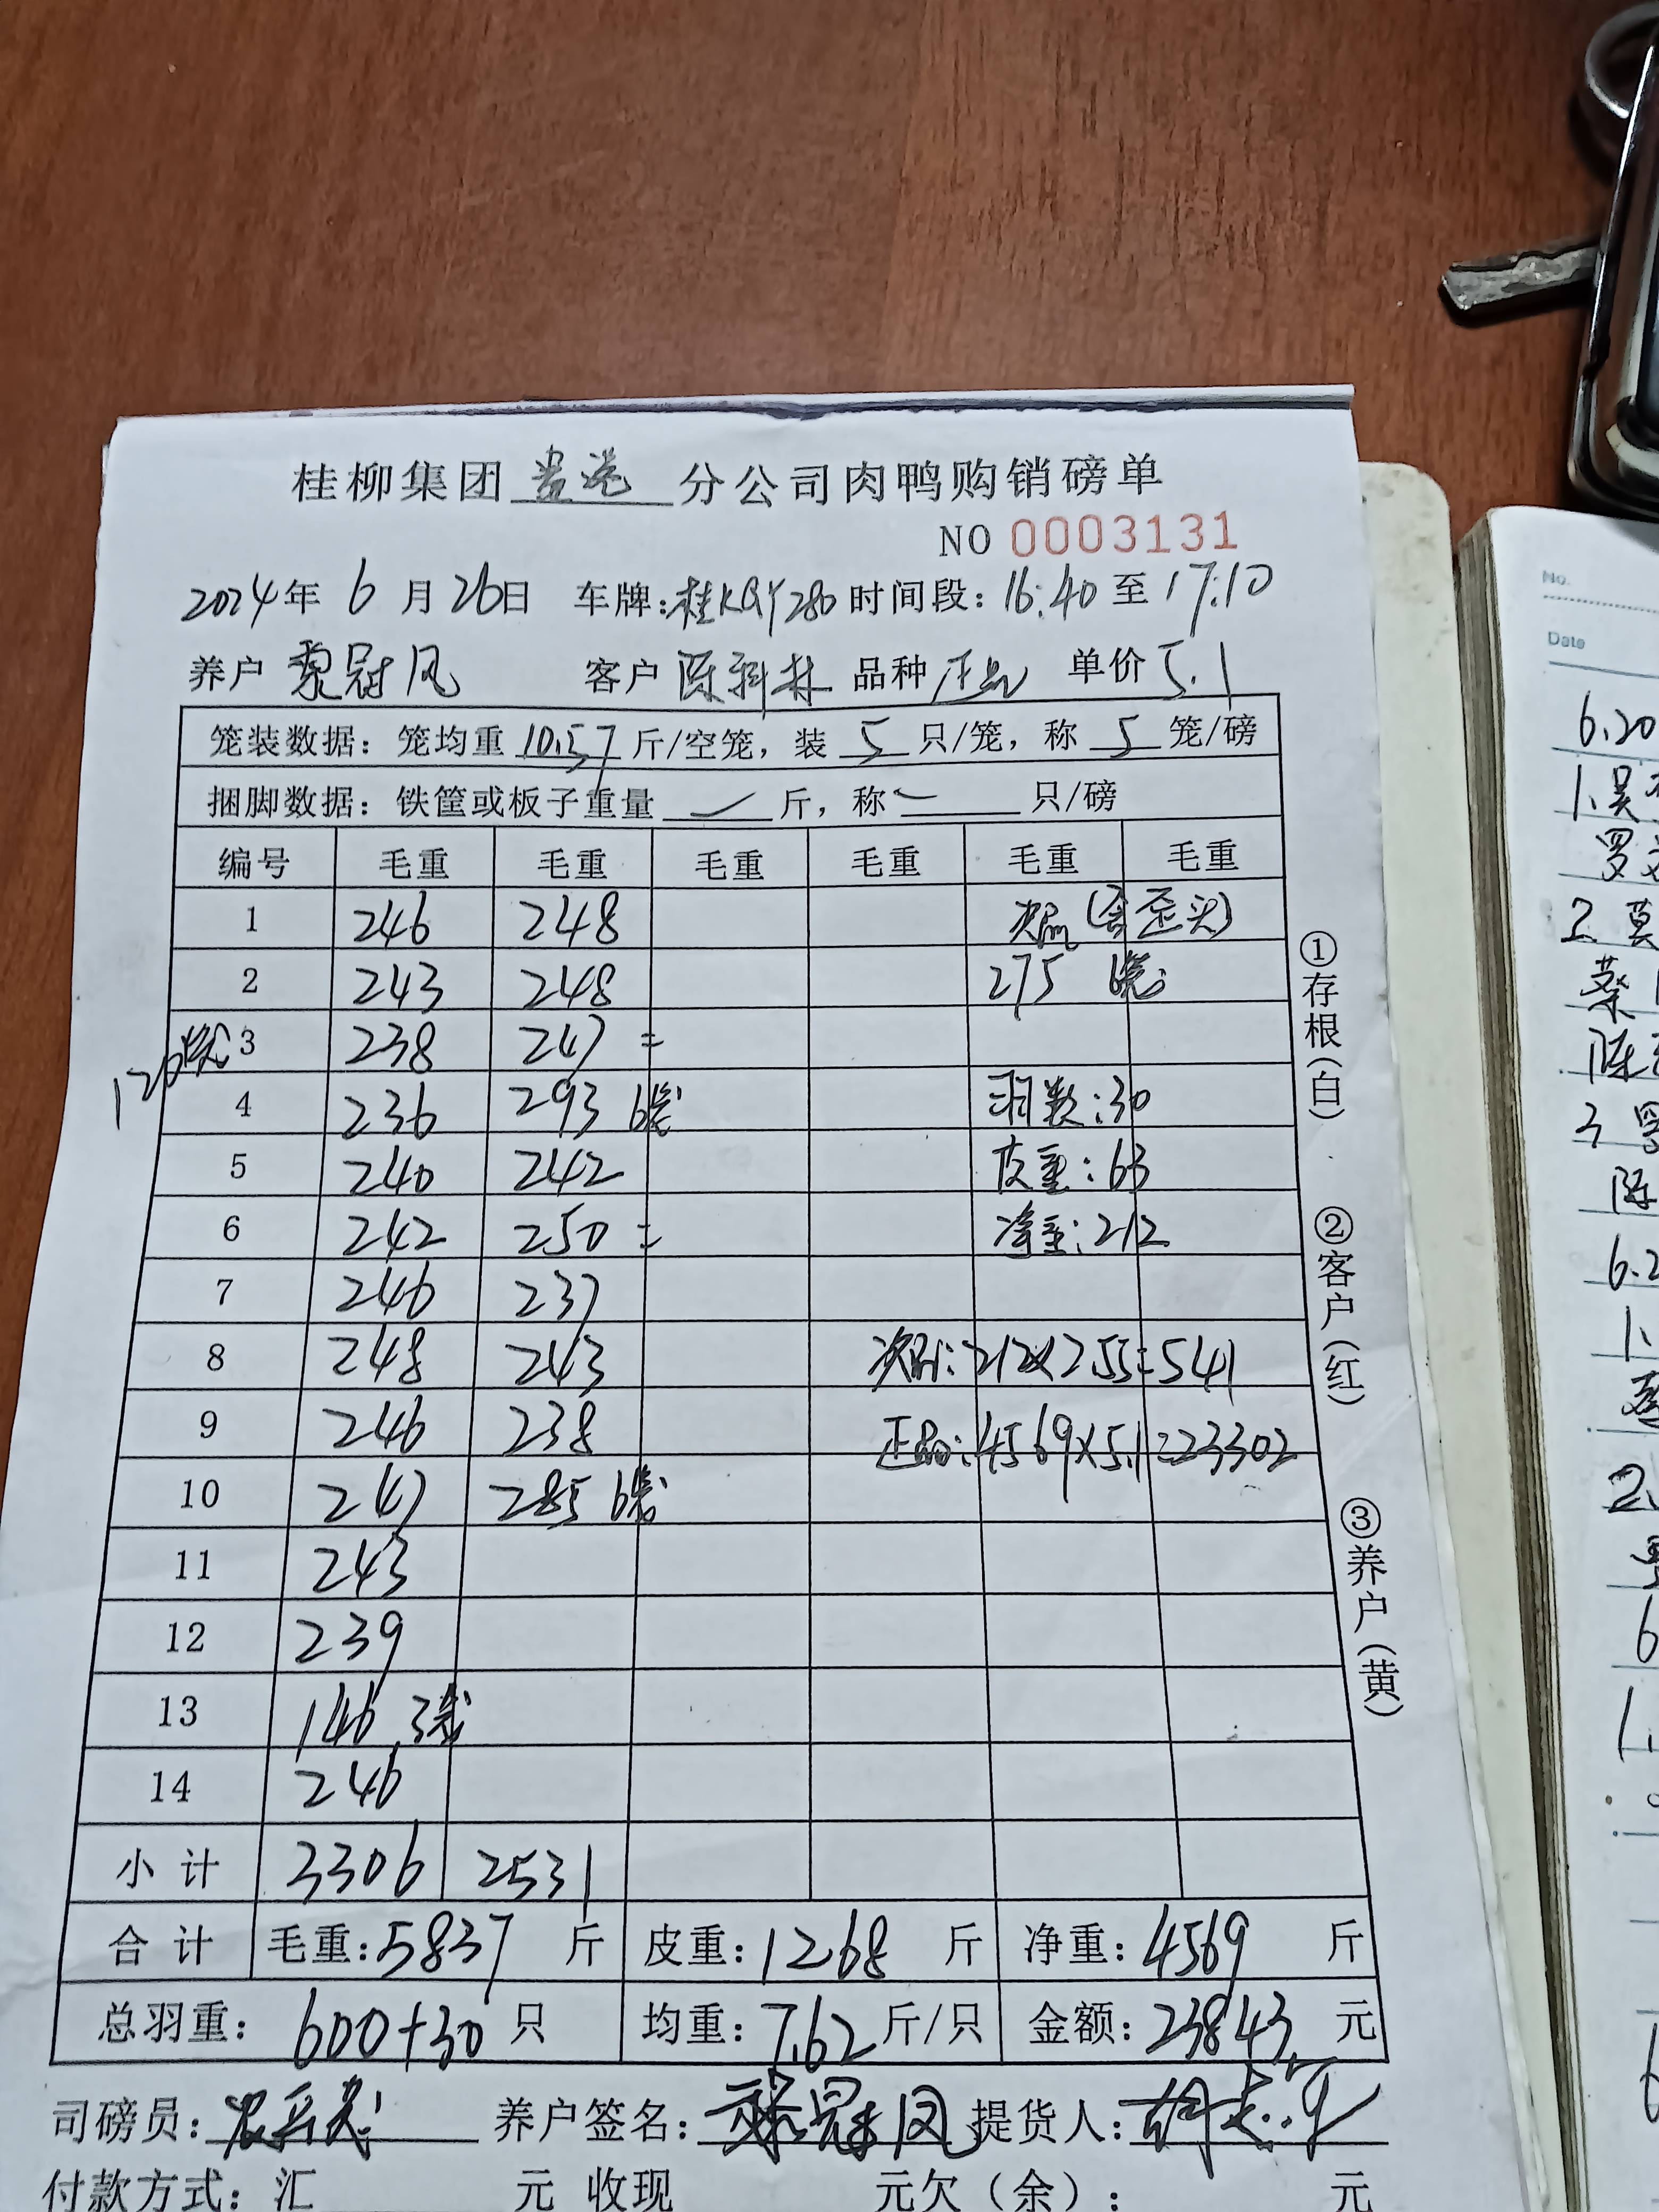 桂柳集团贵港分公司肉鸭购销磅单
NO 0003131
2024年6月26日 车牌:桂KQY280 时间段:16:40至17:10
养户 黎冠凤 客户 陈科林 品种 正品 单价 5.1
笼装数据:笼均重 10.57 斤/空笼,装 5 只/笼,称 5 笼/磅
捆脚数据:铁筐或板子重量 — 斤,称 — 只/磅
编号 毛重 毛重 毛重 毛重 毛重 毛重
1 246 248 次品(含歪头)
2 243 248 275 6笼
120笼 3 238 247 =
4 236 293 6笼 羽数:30
5 240 242 皮重:63
6 242 250 = 净重:212
7 246 237
8 248 243 次品:212×2.55=541
9 246 238 正品:4569×5.1=23302
10 247 285 6笼
11 243
12 239
13 146 3笼
14 246
小计 3306 2531
合计 毛重:5837 斤 皮重:1268 斤 净重:4569 斤
总羽重:600+30 只 均重:7.62 斤/只 金额:23843 元
司磅员: 养户签名:黎冠凤 提货人:
付款方式:汇 元 收现 元欠(余): 元
①存根(白)
②客户(红)
③养户(黄)
No.
Date
6.20
1.吴
2.莫
陈
3.罗
陈
6.2
1.
2.
6
1.